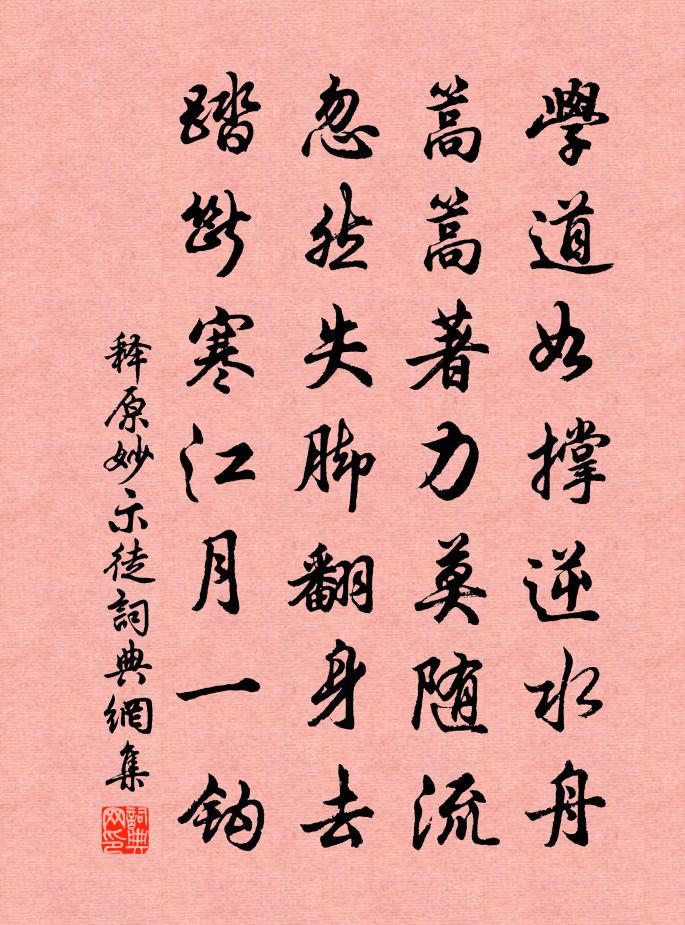 學道如撐逆水舟
蒿蒿著力莫随流
忽然失脚翻身去
踏断寒江月一鈎
释原妙示徒詞典網集
詞典网印